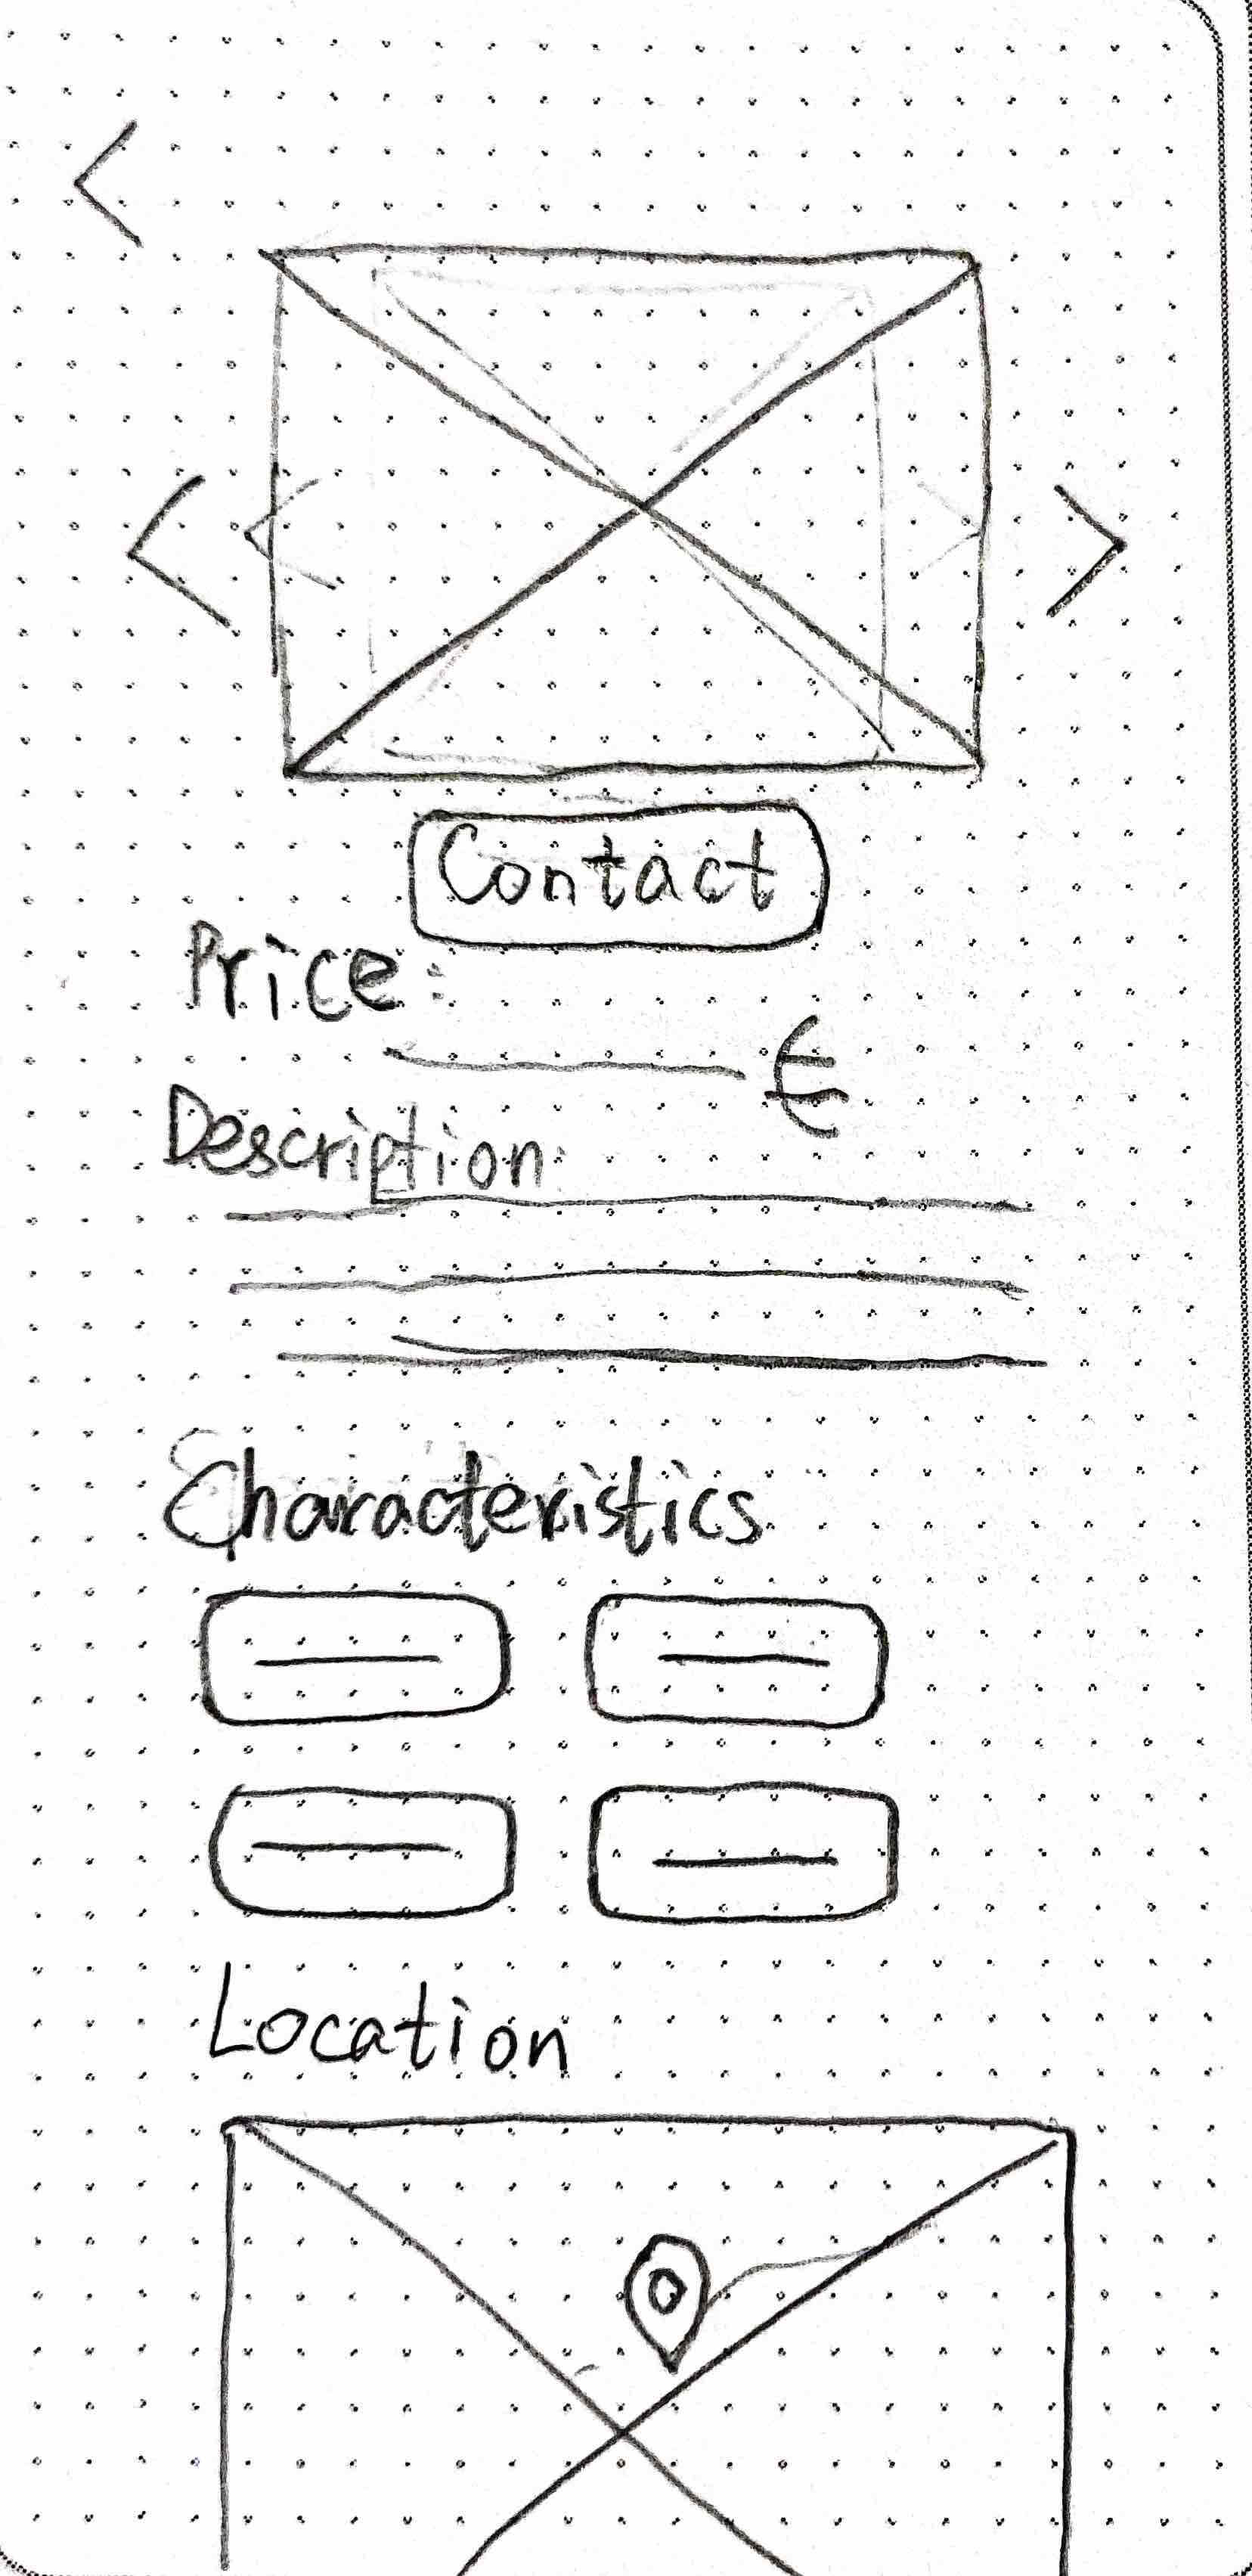 Contact
Price:
€
Description:
Characteristics
Location